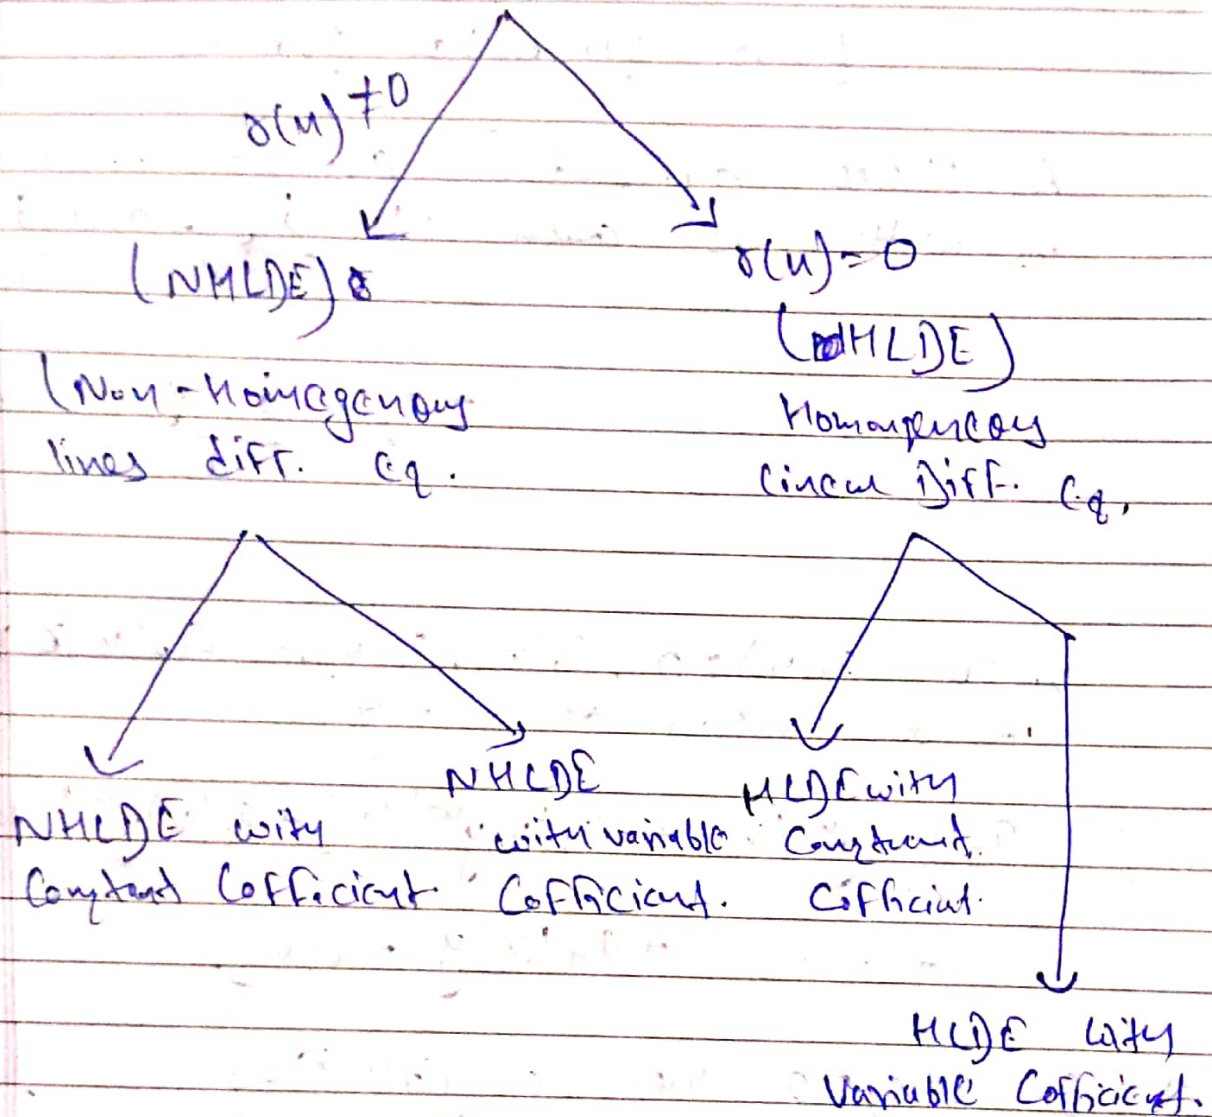 r(x) ≠ 0
r(x) = 0
(NHLDE)
(HLDE)
(Non-Homogenous
lines diff. eq.
Homogeneous
Linear Diff. Eq.
NHLDE with
Constant Cofficient
NHLDE
with variable
Cofficient.
HLDE with
Constant
Cifficient.
HLDE with
Variable Cofficient.